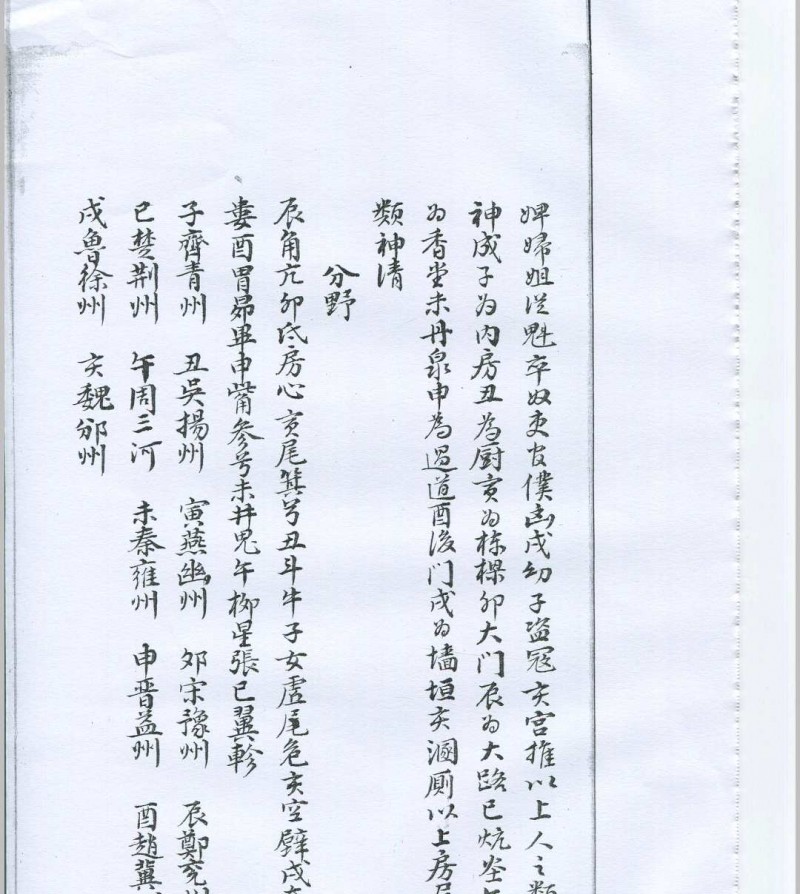 婢婦姐從魁卒奴吏官僕幽戌幼子盜冦亥宫推以上人之類
神成子为内房丑為厨寅为栋樑卯大门辰为大路巳炕
为香堂未丹泉申為過道酉後门戌为墙垣亥溷厠以上房
類神清
分野
辰角亢卯氐房心寅尾箕兮丑斗牛子女虚尾危亥室壁戌
婁酉胃昴畢申觜參兮未井鬼午柳星張巳翼軫
子齊青州 丑吳揚州 寅燕幽州 夘宋豫州 辰鄭兖州
巳楚荆州 午周三河 未秦雍州 申晋益州 酉趙冀
戌魯徐州 亥魏邠州